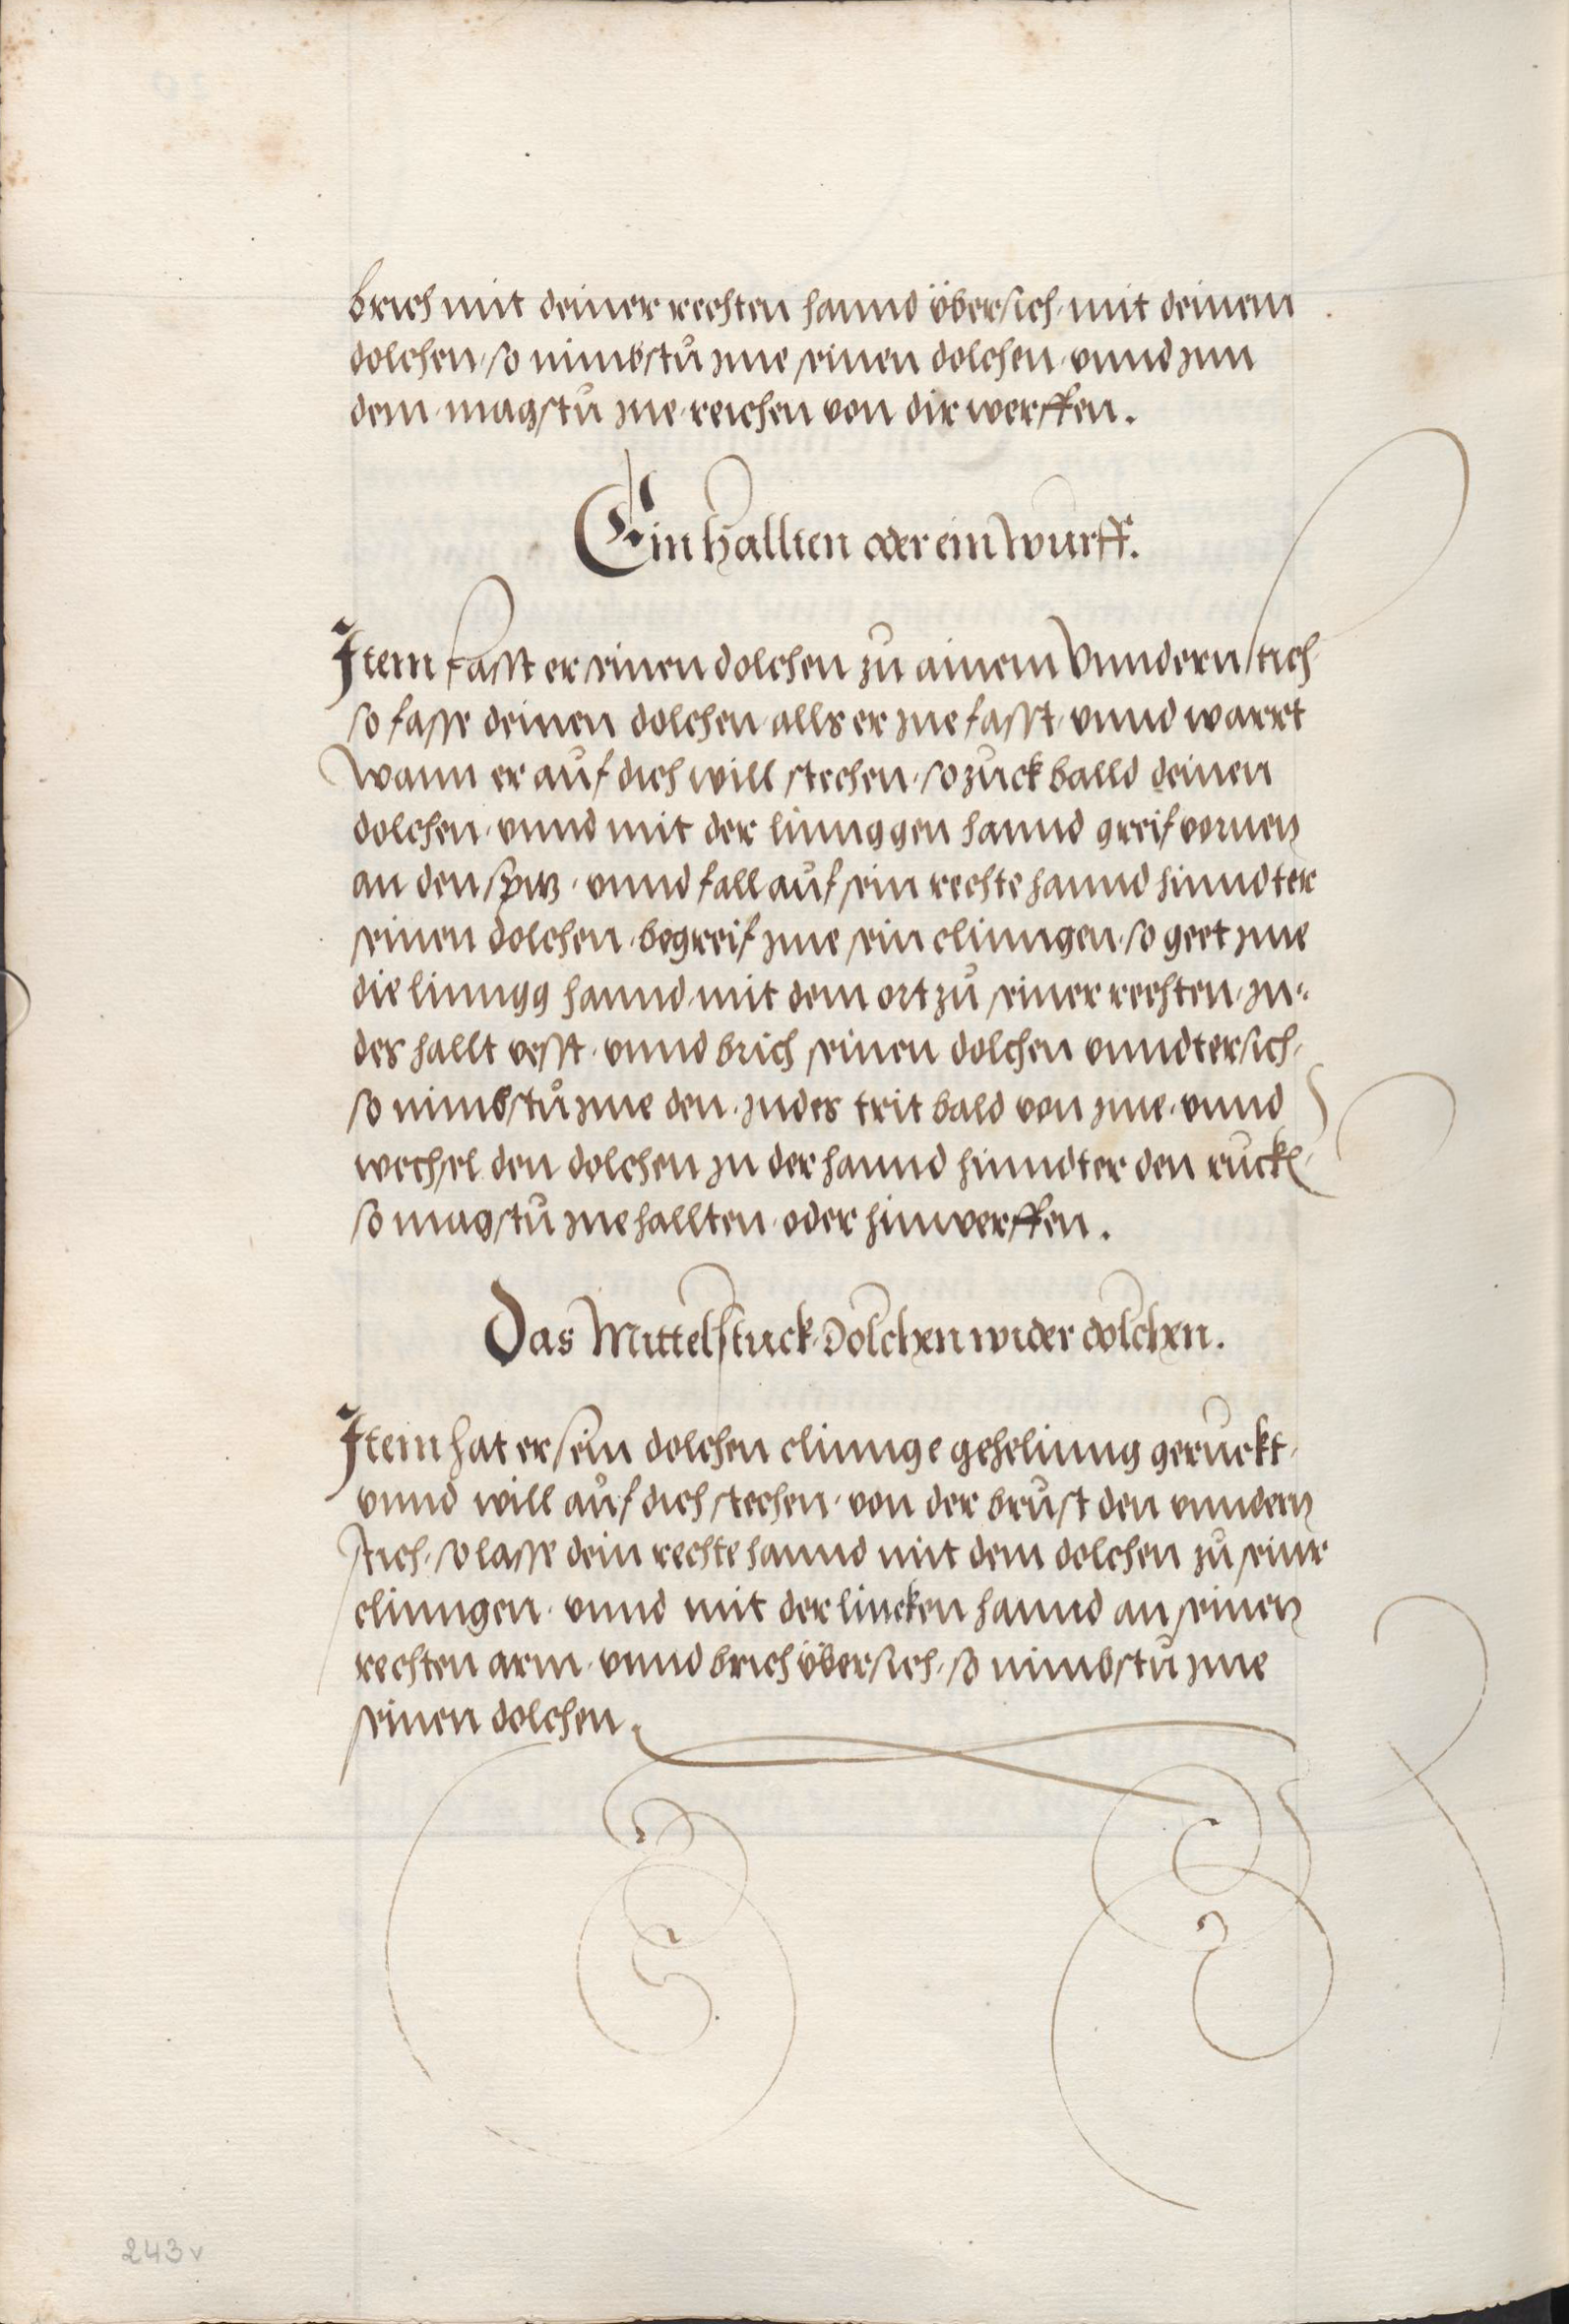 brich mit deiner rechten hannd übersich, mit deinem
dolchen, so nimbstu jme seinen dolchen, vnnd jnn
dem, magstu jne, reichen von dir werffen.
Ein hallten oder ein wurff.
Item fasst er seinen dolchen zu ainem Vnndern stich,
so fasse deinen dolchen, alls er jne fasst, vnnd warrt
wann er auf dich will stechen, so zuck balld deinen
dolchen, vnnd mit der linnggen hannd greif vornen
an den spitz, vnnd fall auf sein rechte hannd hinndter
seinen dolchen, begreif jme sein clinngen, so geet jme
die linngg hannd, mit dem ort zu seiner rechten, jn=
des hallt vesst, vnnd brich seinen dolchen vnndtersich,
so nimbstu jme den, jndes trit bald von jme, vnnd
wechsel den dolchen jn der hannd hinndter den ruckh,
so magstu jne hallten, oder hinwerffen.
Das Mittelstuck, Dolchen wider dolchen.
Item hat er sein dolchen clinnge gehelinng geruckt,
vnnd will auf dich stechen, von der brust den vnndern
stich, so lasse dein rechte hannd mit dem dolchen zu seinr
clinngen, vnnd mit der lincken hannd an seinen
rechten arm, vnnd brich übersich, so nimbstu jme
seinen dolchen.
243v